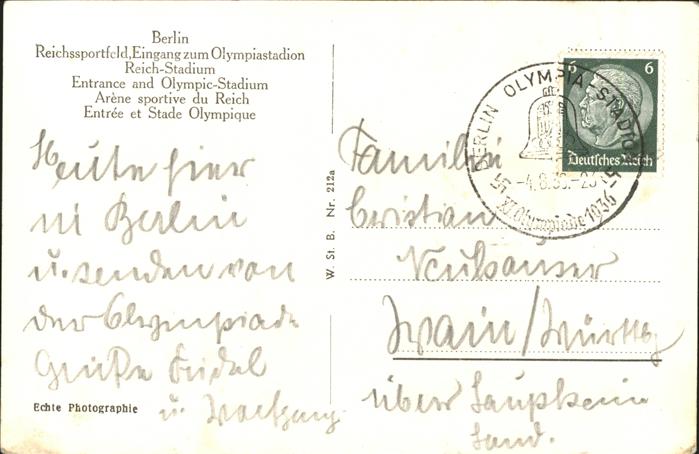 Berlin
Reichssportfeld, Eingang zum Olympiastadion
Reich-Stadium
Entrance and Olympic-Stadium
Arène sportive du Reich
Entrée et Stade Olympique
Heute hier
in Berlin
u. senden von
der Olympiade
Grüße Friedel
u. Wolfgang
Echte Photographie
W. St. B. Nr. 212a
BERLIN OLYMPIA-STADION
-4.8.36.-2
XI. Olympiade 1936
6 6
Deutsches Reich
Familie
Christian
Neuhauser
Wain/Württbg
über Laupheim
Land.